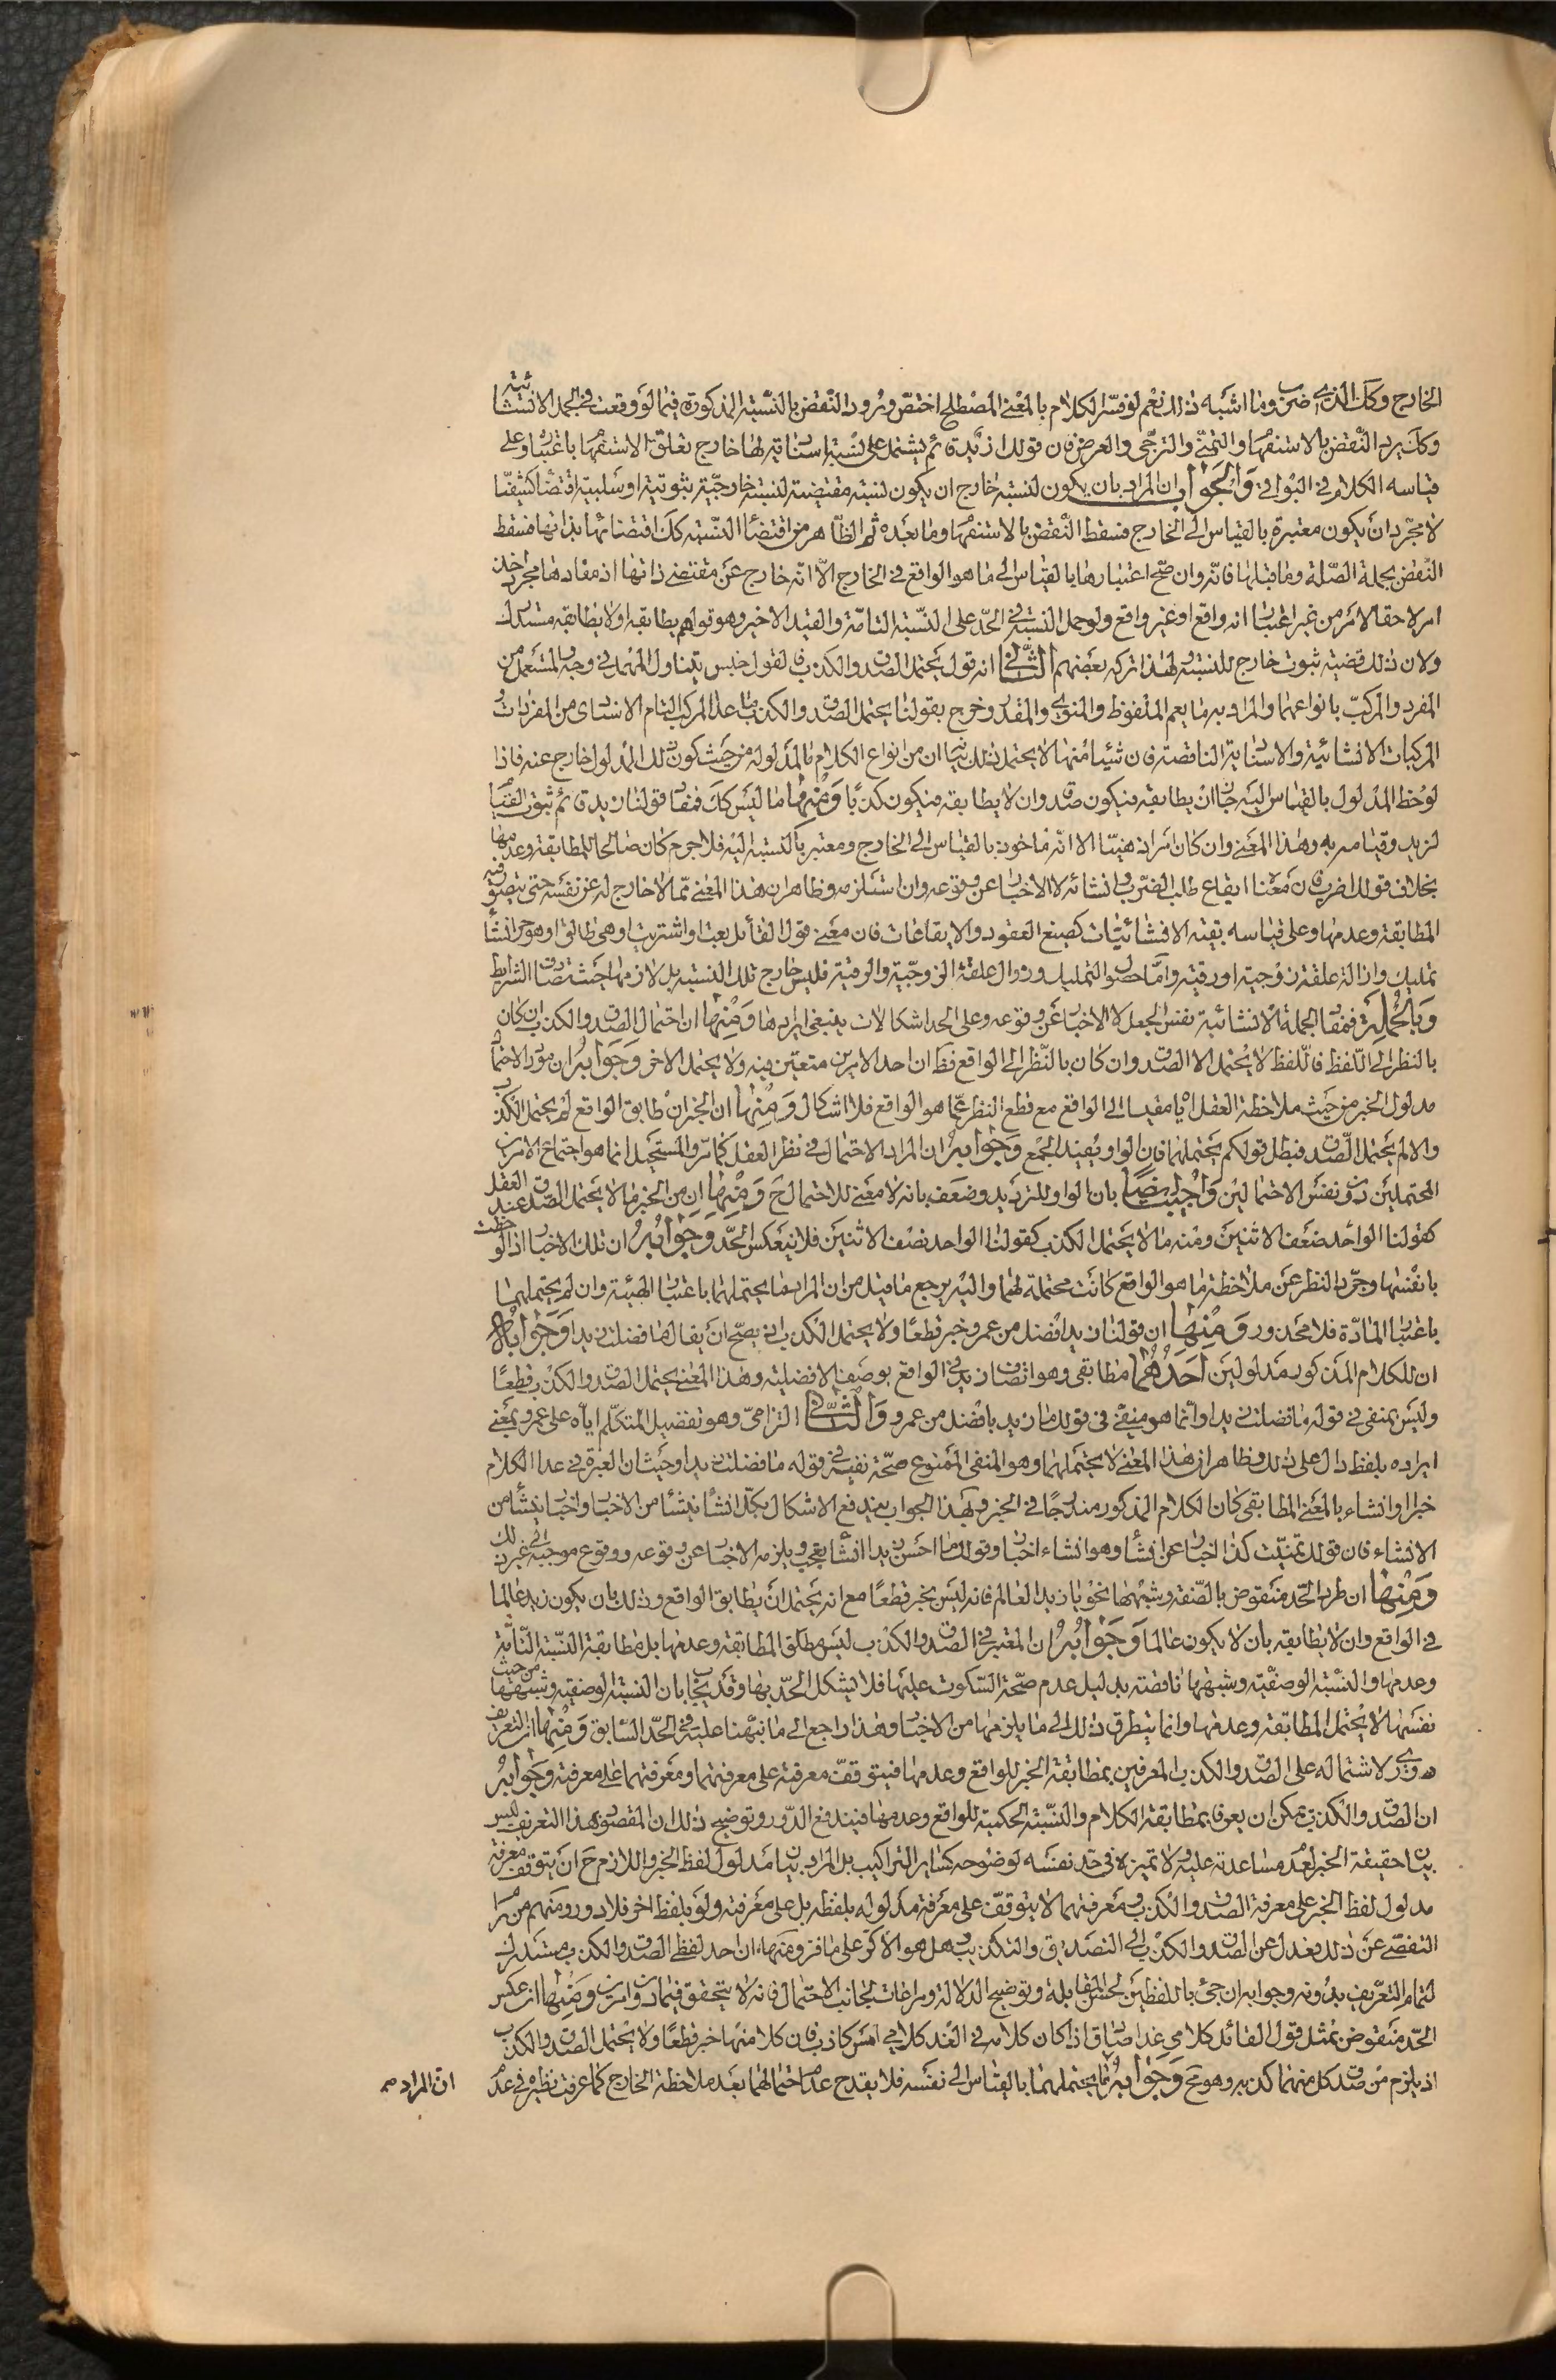 الخارج وكك الذى ضرب وما اشبه ذلك نعم لو فسّر الكلام بالمعنى المصطلح اختصّ ورود النّقض بالنّسبة المذكورة فيما لو وقعت فى الجمل الانشائية
وكك يرد النّقض بالاستفهام والتمنّى والترجّى والعرض فان قولك ازيد قائم يشتمل على نسبة اسنادية لها خارج تعلق الاستفهام باعتباره وعلى
قياسه الكلام فى البواقى والجواب ان المراد بان يكون لنسبته خارج ان يكون نسبته مقتضية لنسبة خارجيّة ثبوتية او سلبية اقتضاء كشفيّا
لا مجرّد ان يكون معتبرة بالقياس الى الخارج فسقط النّقض بالاستفهام وما بعده ثم الظّاهر من اقتضاء النّسبة كك اقتضائها بذاتها فسقط
النّقض بجملة الصّلة وما قبلها فانّه وان صحّ اعتبارها بالقياس الى ما هو الواقع فى الخارج الّا انّه خارج عن مقتضى ذاتها اذ مفادها مجرد اخذ
امر لاحقا لامر من غير اعتبار انه واقع او غير واقع ولو حمل النسبة فى الحدّ على النّسبة التامّة والقيد الاخير وهو قولهم يطابقه او لا يطابقه مستدرك
ولان ذلك قضية ثبوت خارج للنسبة ولهذا تركه بعضهم الثّانى انه قول يحتمل الصدق والكذب فالقول جنس يتناول المهمل فى وجه والمستعمل من
المفرد والمركّب بانواعهما والمراد به ما يعم الملفوظ والمنوى والمقدر وخرج بقولنا يحتمل الصدق والكذب ما عدا المركب التام الاسنادى من المفردات
المركبات الانشائية والاسنادية الناقصة فان شيئا منها لا يحتمل ذلك بيان ان من انواع الكلام ما لمدلوله من حيث كونه لذلك المدلول خارج عنه فاذا
لوحظ المدلول بالقياس اليه جاز ان يطابقه فيكون صدقا وان لا يطابقه فيكون كذبا ومنها ما ليس كك فمفاد قولنا زيد قائم ثبوت القيام
لزيد وقيامه به وهذا المعنى وان كان امرا ذهنيّا الا انّه ماخوذ بالقياس الى الخارج ومعتبر بالنسبة اليه فلا جرم كان صالحا للمطابقة وعدمها
بخلاف قولك اضرب فان معناه ايقاع طلب الضّرب وانشائه لا الاخبار عن وقوعه وان استلزمه وظاهر ان هذا المعنى ممّا لا خارج له عن نفسه حتى يتصوّر فيه
المطابقة وعدمها وعلى قياسه بقية الانشائيّات كصيغ العقود والايقاعات فان معنى قول القائل بعت او اشتريت او هى طالق او هو حر انشاء
تمليك وازالة علقة زوجية او رقية وامّا حصول التمليك وزوال علقة الزوجيّة والرقية فليس خارج تلك النسبة بل لازمها حيث تصادف الشرايط
وبالجملة فمفاد الجملة الانشائية نفس الجعل لا الاخبار عن وقوعه وعلى الحد اشكالات ينبغى ايرادها ومنها ان احتمال الصدق والكذب ان كان
بالنظر الى اللّفظ فاللّفظ لا يحتمل الا الصدق وان كان بالنّظر الى الواقع فظ ان احد الامرين متعيّن فيه ولا يحتمل الاخر وجوابه ان مورد الاحتمال
مدلول الخبر من حيث ملاحظة العقل اياه مقيسا الى الواقع مع قطع النظر عمّا هو الواقع فلا اشكال ومنها ان الخبر ان طابق الواقع لم يحتمل الكذب
والا لم يحتمل الصّدق فبطل قولكم يحتملهما فان الواو يفيد الجمع وجوابه ان المراد الاحتمال فى نظر العقل كما مرّ والمستحيل انما هو اجتماع الامرين
المحتملين دون نفس الاحتمالين واجيب ايضا بان الواو للترديد وضعف بانه لا معنى للاحتمال ح ومنها ان من الخبر ما لا يحتمل الصدق عند العقل
كقولنا الواحد ضعف الاثنين ومنه ما لا يحتمل الكذب كقولنا الواحد نصف الاثنين فلا ينعكس الحدّ وجوابه ان تلك الاخبار اذا لوحظت
بانفسها وجرّد النظر عن ملاحظة ما هو الواقع كانت محتملة لهما واليه يرجع ما قيل من ان المراد ما يحتملهما باعتبار الهيئة وان لم يحتملهما
باعتبار المادّة فلا محذور ومنها ان قولنا زيد افضل من عمرو خبر قطعا ولا يحتمل الكذب اذ يصحّ ان يقال ما فضلت زيدا وجوابه
ان للكلام المذكور مدلولين احدهما مطابقى وهو اتصاف زيد فى الواقع بوصف الافضلية وهذا المعنى يحتمل الصدق والكذب قطعا
وليس بمنفى فى قوله ما فضلت زيدا وانّما هو منفىّ فى قولك ما زيد بافضل من عمرو والثّانى التزامىّ وهو تفضيل المتكلّم اياه على عمرو بمعنى
ايراده بلفظ دال على ذلك وظاهر ان هذا المعنى لا يحتملهما وهو المنفى الممنوع صحّة نفيه فى قوله ما فضلت زيدا وحيث ان العبرة فى عد الكلام
خبرا او انشاء بالمعنى المطابقى كان الكلام المذكور مندرجا فى الخبر وبهذا الجواب يندفع الاشكال بكل انشاء ينشأ من الاخبار واخبار ينشأ من
الانشاء فان قولك تمنيت كذا اخبار عن انشاء وهو انشاء اخبار وقولك ما احسن زيدا انشاء تعجب ويلزمه الاخبار عن وقوعه ووقوع موجبه الى غير ذلك
ومنها ان طرد الحّد منقوض بالصّفة وشبهها نحو يا زيد العالم فانه ليس بخبر قطعا مع انه يحتمل ان يطابق الواقع وذلك بان يكون زيد عالما
فى الواقع وان لا يطابقه بان لا يكون عالما وجوابه ان المعتبر فى الصدق والكذب ليس مطلق المطابقة وعدمها بل مطابقة النّسبة التّامّة
وعدمها والنّسبة الوصفيّة وشبهها ناقصة بدليل عدم صحّة السّكوت عليها فلا يشكل الحدّ بها وقد يجاب بان النسبة الوصفية وشبهها من حيث
نفسها لا يحتمل المطابقة وعدمها وانما يتطرق ذلك الى ما يلزمها من الاخبار وهذا راجع الى ما نبّهنا عليه فى الحدّ السّابق ومنها ان التعريف
دورى لاشتماله على الصدق والكذب المعرفين بمطابقة الخبر للواقع وعدمها فيتوقفّ معرفته على معرفتهما ومعرفتهما على معرفته وجوابه
ان الصدق والكذب يمكن ان يعرفا بمطابقة الكلام والنّسبة الحكمية للواقع وعدمها فيندفع الدّور وتوضيح ذلك ان المقصود بهذا التعريف ليس
بيان حقيقة الخبر لعدم مساعدته عليه ولا تميزه فى حد نفسه لوضوحه كساير التراكيب بل المراد بيان مدلول لفظ الخبر واللازم ح ان يتوقف معرفة
مدلول لفظ الخبر على معرفة الصدق والكذب ومعرفتهما لا يتوقّف على معرفة مدلوله بلفظه بل على معرفته ولو بلفظ اخر فلا دور ومنهم من رام
التفصّى عن ذلك فعدل عن الصدق والكذب الى التصديق والتكذيب وهل هو الا كر على ما فر ومنها ان احد لفظى الصدق والكذب مستدرك
لتمام التعريف بدونه وجوابه ان جىء باللفظين لحسن المقابلة وتوضيح الدلالة ومراعات لجانب الاحتمال فانه لا يتحقق فيما دون امرين ومنها ان عكس
الحّد منقوض بمثل قول القائل كلامى غدا صادق اذا كان كلامه فى الغد كلامى امس كاذب فان كلا منها خبر قطعا ولا يحتمل الصدق والكذب
اذ يلزم من صدق كل منهما كذبه وهو مح وجوابه انّما يحتملهما بالقياس الى نفسه فلا يقدح عدم احتمالهما بعد ملاحظة الخارج كما عرفت نظيره فى عدم
ان المراد